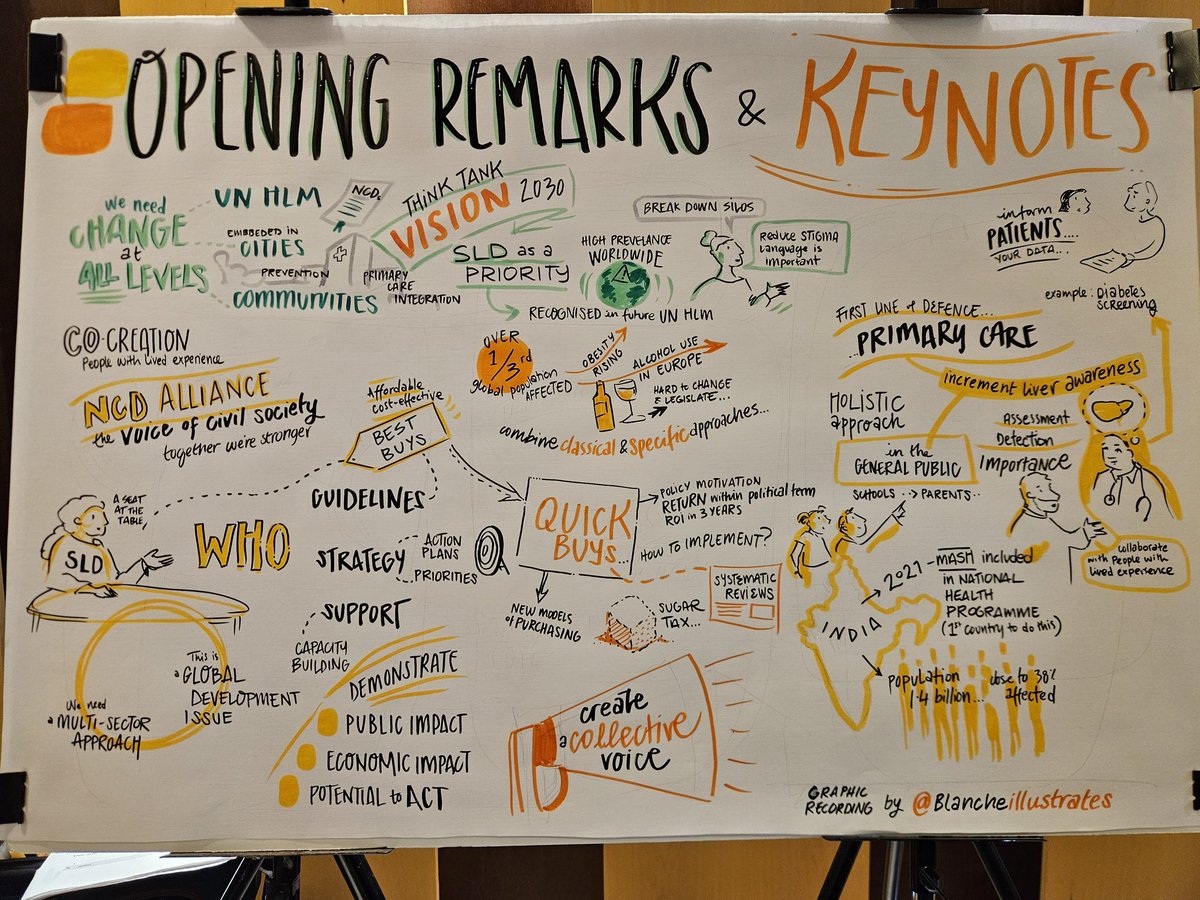 OPENING REMARKS & KEYNOTES
We need
CHANGE
at
ALL LEVELS
UN HLM
EMBEDED IN
CITIES
PREVENTION
COMMUNITIES
NCDs
PRIMARY
CARE
INTEGRATION
THINK TANK
VISION 2030
SLD as a
PRIORITY
HIGH PREVELANCE
WORLDWIDE
RECOGNISED in future UN HLM
BREAK DOWN SILOS
REDUCE STIGMA
Language is
important
inform
PATIENTS....
YOUR DATA....
example: Diabetes
Screening
CO-CREATION
People with lived experience
NCD ALLIANCE
the VOICE of CIVIL SOCIETY
together we're stronger
OVER
1/3rd
global population
AFFECTED
OBESITY
RISING
ALCOHOL USE
IN EUROPE
HARD to CHANGE
& LEGISLATE...
combine classical & specific approaches...
FIRST LINE of DEFENCE...
...PRIMARY CARE
increment liver awareness
HOLISTIC
approach
in the
GENERAL PUBLIC
SCHOOLS ..> PARENTS..
Assessment
Detection
Importance
collaborate
with People with
lived experience
Affordable
cost-effective
BEST
BUYS
A SEAT
AT THE
TABLE,
SLD
WHO
GUIDELINES
STRATEGY
ACTION
PLANS
PRIORITIES
SUPPORT
CAPACITY
BUILDING
QUICK
BUYS...
POLICY MOTIVATION
RETURN within political term
ROI in 3 YEARS
HOW TO IMPLEMENT?
SYSTEMATIC
REVIEWS
NEW MODELS
of PURCHASING
SUGAR
TAX...
INDIA
2021 - MASH included
in NATIONAL
HEALTH
PROGRAMME
(1st COUNTRY to do this)
population
1.4 billion...
close to 38%
affected
This is
a GLOBAL
DEVELOPMENT
ISSUE
We need
a MULTI-SECTOR
APPROACH
DEMONSTRATE
PUBLIC IMPACT
ECONOMIC IMPACT
POTENTIAL to ACT
create
a collective
voice
GRAPHIC
RECORDING by @Blancheillustrates